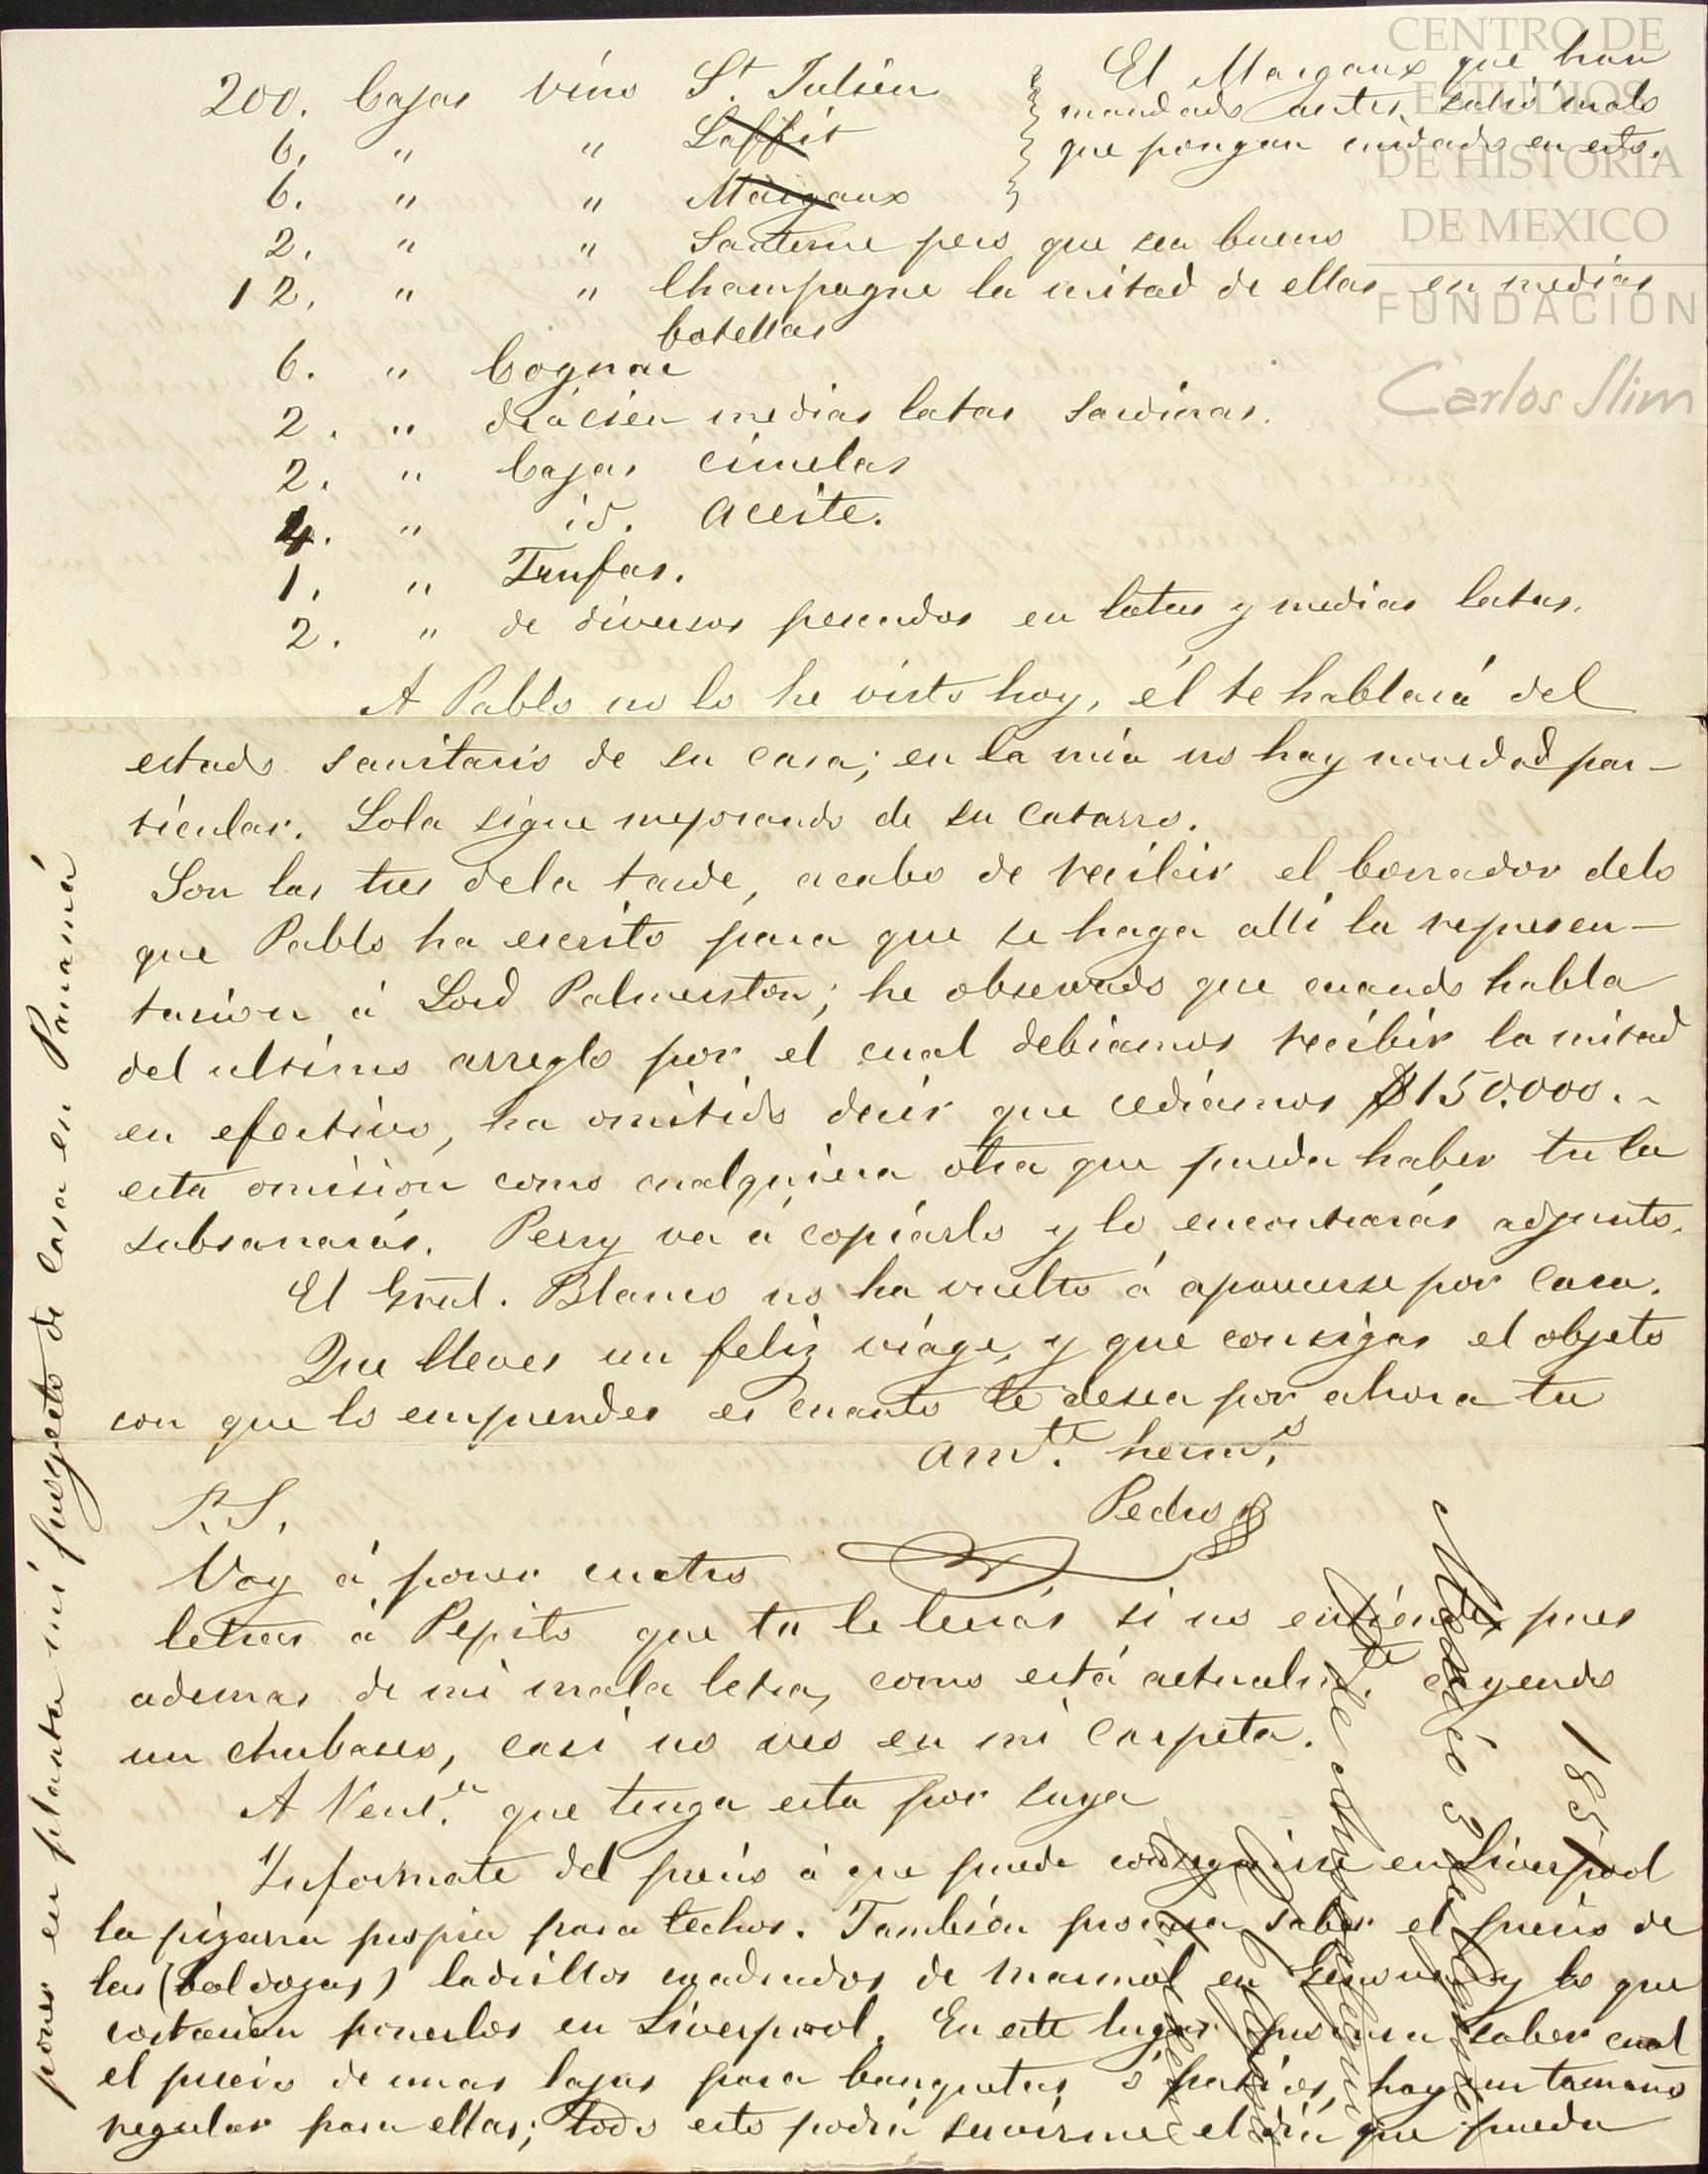 200. Cajas vino St. Julien
6. " " Laffit
6. " " Margaux
El Margaux que han
mandado antes, salió malo
que pongan cuidado en esto.
2. " " Sauterne pero que sea bueno
12. " " Champagne la mitad de ellas en medias
botellas
6. " Cognac
2. " de á cien medias latas sardinas.
2. " Cajas ciruelas
4. " id. aceite.
1. " Trufas.
2. " de diversos pescados en latas y medias latas.
A Pablo no lo he visto hoy, él te hablará del
estado sanitario de su casa; en la mia no hay novedad par-
ticular. Lola sigue mejorando de su catarro.
Son las tres dela tarde, acabo de recibir el borrador delo
que Pablo ha escrito para que se haga alli la represen-
tacion á Lord Palmerston; he observado que cuando habla
del ultimo arreglo por el cual debiamos recibir la mitad
en efectivo, ha omitido decir que cediamos $150.000.-
esta omision como cualquiera otra que pueda haber tu la
subsanarás. Perry vá á copiarlo y lo encontrarás adjunto.
El Gral. Blanco no ha vuelto á aparecerse por casa.
Que lleves un feliz viage, y que consigas el objeto
con que lo emprendes es cuanto te desea por ahora tu
amte. hermo.
Pedro
P.S.
Voy á poner cuatro
letras á Pepito que tu le leerás si no entiende, pues
ademas de mi mala letra, como está actualmte. cayendo
un chubasco, casi no veo en mi carpeta.
A Vent.a que tenga esta por suya
Informate del precio á que puede conseguirse en Liverpool
la pizarra propia para techos. También procura saber el precio de
las (baldozas) ladrillos cuadrados de marmol en Genova y lo que
costarian ponerlos en Liverpool. En este lugar procura saber cual
el precio de unas lajas para banquetas ó patios, hay un tamaño
regular para ellas; todo esto podrá servirme el dia que pueda
poner en planta mi proyecto de casa en Panamá
1851